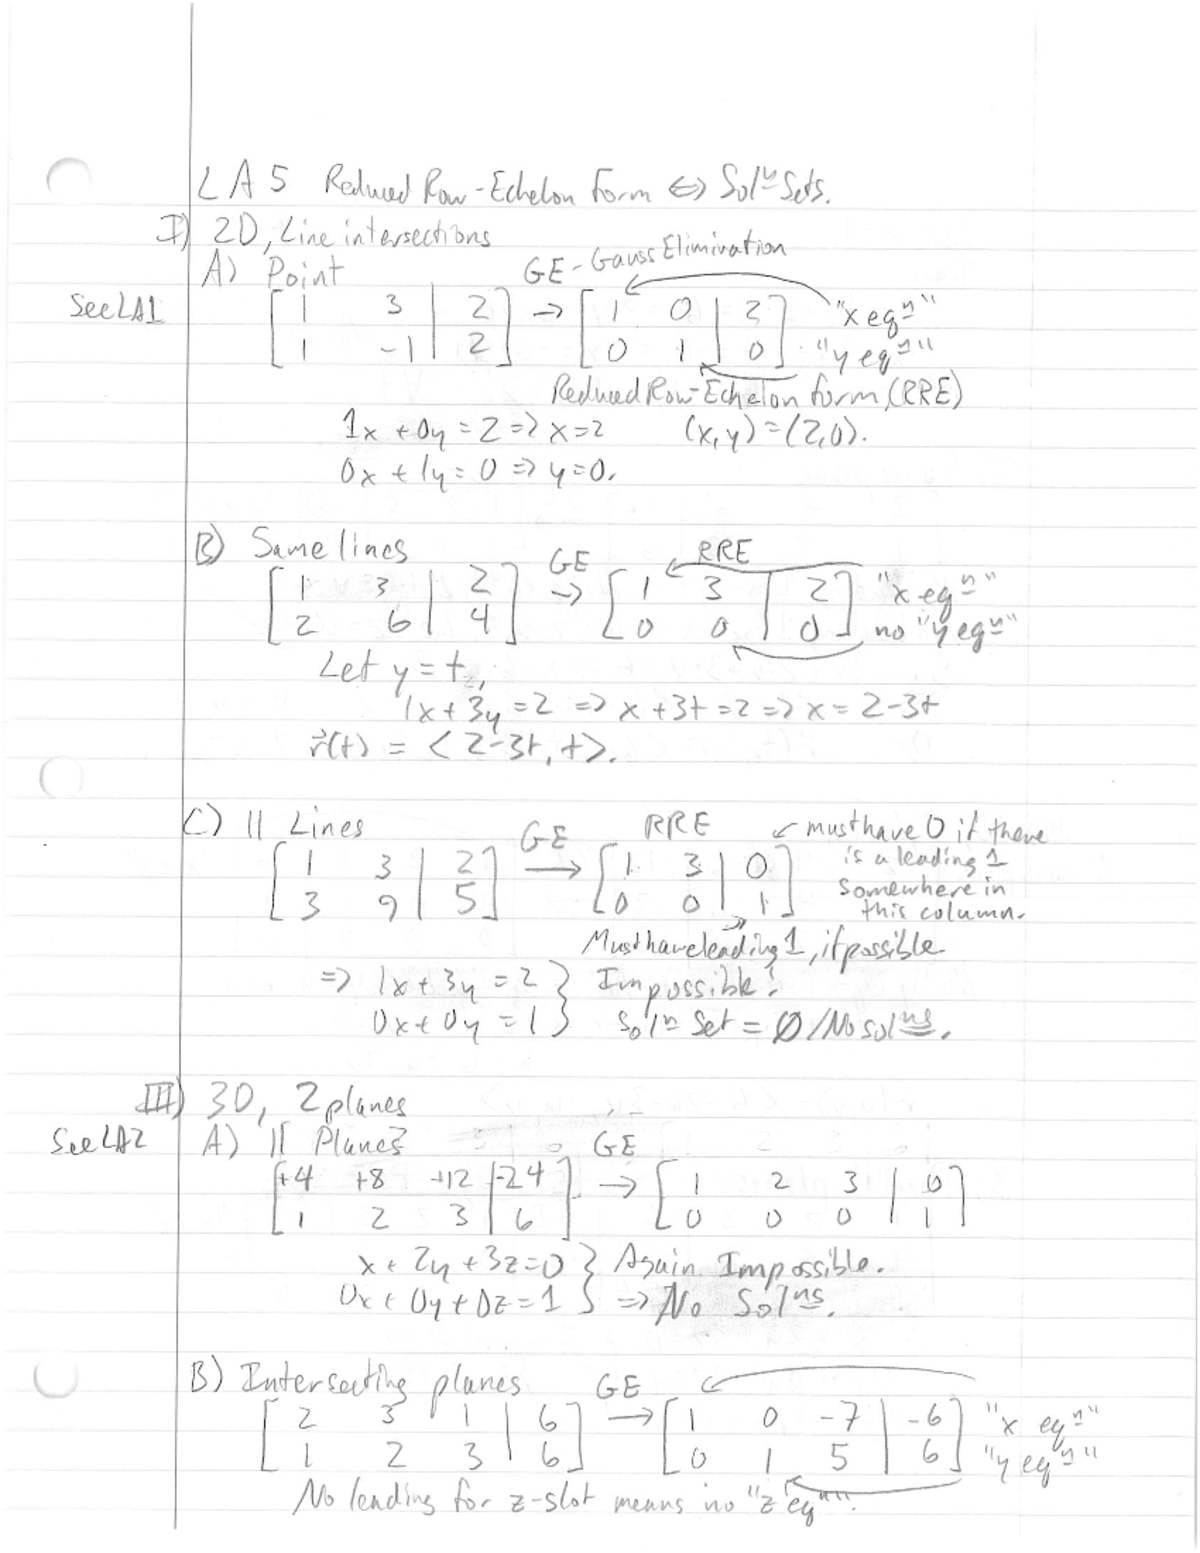 LA5 Reduced Row-Echelon Form ⇔ Solⁿ Sets.
I) 2D, Line intersections
A) Point GE - Gauss Elimination
See LA1 [1 3 | 2] → [1 0 | 2] "x eqⁿ"
[1 -1 | 2] [0 1 | 0] "y eqⁿ"
Reduced Row-Echelon form, (RRE)
1x + 0y = 2 => x=2 (x,y) = (2,0).
0x + 1y = 0 => y=0.
B) Same lines GE RRE
[1 3 | 2] → [1 3 | 2] "x eqⁿ"
[2 6 | 4] [0 0 | 0] no "y eqⁿ"
Let y = t,
1x + 3y = 2 => x + 3t = 2 => x = 2-3t
r⃗(t) = <2-3t, t>.
C) || Lines GE RRE ← must have 0 if there
[1 3 | 2] → [1 3 | 0] is a leading 1
[3 9 | 5] [0 0 | 1] Somewhere in
this column.
Must have leading 1, if possible
=> 1x + 3y = 2 } Impossible!
0x + 0y = 1 } Solⁿ Set = Ø / No solⁿˢ.
III) 3D, 2 planes
See LA2 A) || Planes GE
[+4 +8 +12 | -24] → [1 2 3 | 0]
[1 2 3 | 6] [0 0 0 | 1]
x + 2y + 3z = 0 } Again Impossible.
0x + 0y + 0z = 1 } => No Solⁿˢ.
B) Intersecting planes GE
[2 3 1 | 6] → [1 0 -7 | -6] "x eqⁿ"
[1 2 3 | 6] [0 1 5 | 6] "y eqⁿ"
No leading for z-slot means no "z eqⁿ".